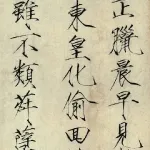 正臘晨早見
東皇化偷回
雖不類茲薩